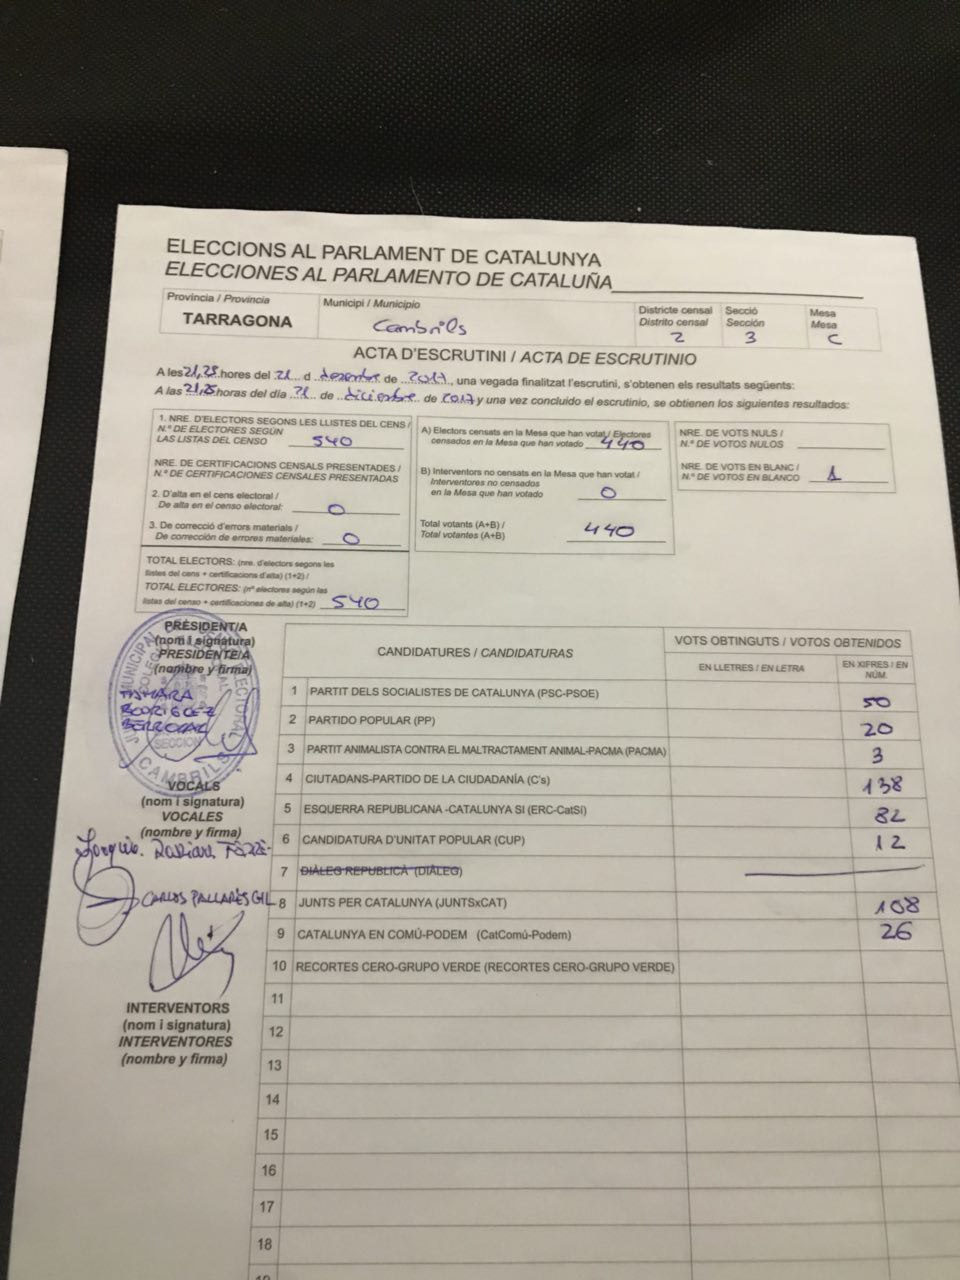 ELECCIONS AL PARLAMENT DE CATALUNYA
ELECCIONES AL PARLAMENTO DE CATALUÑA
Província / Provincia
TARRAGONA
Municipi / Municipio
Cambrils
Districte censal
Distrito censal
2
Secció
Sección
3
Mesa
Mesa
C
ACTA D'ESCRUTINI / ACTA DE ESCRUTINIO
A les 21,25 hores del 21 d desembre de 2017, una vegada finalitzat l'escrutini, s'obtenen els resultats següents:
A las 21,25 horas del día 21 de diciembre de 2017 y una vez concluido el escrutinio, se obtienen los siguientes resultados:
1. NRE. D'ELECTORS SEGONS LES LLISTES DEL CENS /
N.º DE ELECTORES SEGÚN
LAS LISTAS DEL CENSO 540
NRE. DE CERTIFICACIONS CENSALS PRESENTADES /
N.º DE CERTIFICACIONES CENSALES PRESENTADAS
2. D'alta en el cens electoral /
De alta en el censo electoral: 0
3. De correcció d'errors materials /
De corrección de errores materiales: 0
TOTAL ELECTORS: (nre. d'electors segons les
llistes del cens + certificacions d'alta) (1+2) /
TOTAL ELECTORES: (nº electores según las
listas del censo + certificaciones de alta) (1+2) 540
A) Electors censats en la Mesa que han votat / Electores
censados en la Mesa que han votado 440
B) Interventors no censats en la Mesa que han votat /
Interventores no censados
en la Mesa que han votado 0
Total votants (A+B) /
Total votantes (A+B) 440
NRE. DE VOTS NULS /
N.º DE VOTOS NULOS
NRE. DE VOTS EN BLANC /
N.º DE VOTOS EN BLANCO 1
PRESIDENT/A
(nom i signatura)
PRESIDENTE/A
(nombre y firma)
TAMARA
RODRIGUEZ
BERROCAL
CAMBRILS
VOCALS
(nom i signatura)
VOCALES
(nombre y firma)
CARLOS PALLARÈS GIL
INTERVENTORS
(nom i signatura)
INTERVENTORES
(nombre y firma)
CANDIDATURES / CANDIDATURAS
VOTS OBTINGUTS / VOTOS OBTENIDOS
EN LLETRES / EN LETRA
EN XIFRES / EN NÚM.
1 PARTIT DELS SOCIALISTES DE CATALUNYA (PSC-PSOE) 50
2 PARTIDO POPULAR (PP) 20
3 PARTIT ANIMALISTA CONTRA EL MALTRACTAMENT ANIMAL-PACMA (PACMA) 3
4 CIUTADANS-PARTIDO DE LA CIUDADANÍA (C's) 138
5 ESQUERRA REPUBLICANA -CATALUNYA SI (ERC-CatSí) 82
6 CANDIDATURA D'UNITAT POPULAR (CUP) 12
7 DIÀLEG REPUBLICÀ (DIÀLEG)
8 JUNTS PER CATALUNYA (JUNTSxCAT) 108
9 CATALUNYA EN COMÚ-PODEM (CatComú-Podem) 26
10 RECORTES CERO-GRUPO VERDE (RECORTES CERO-GRUPO VERDE)
11
12
13
14
15
16
17
18
19